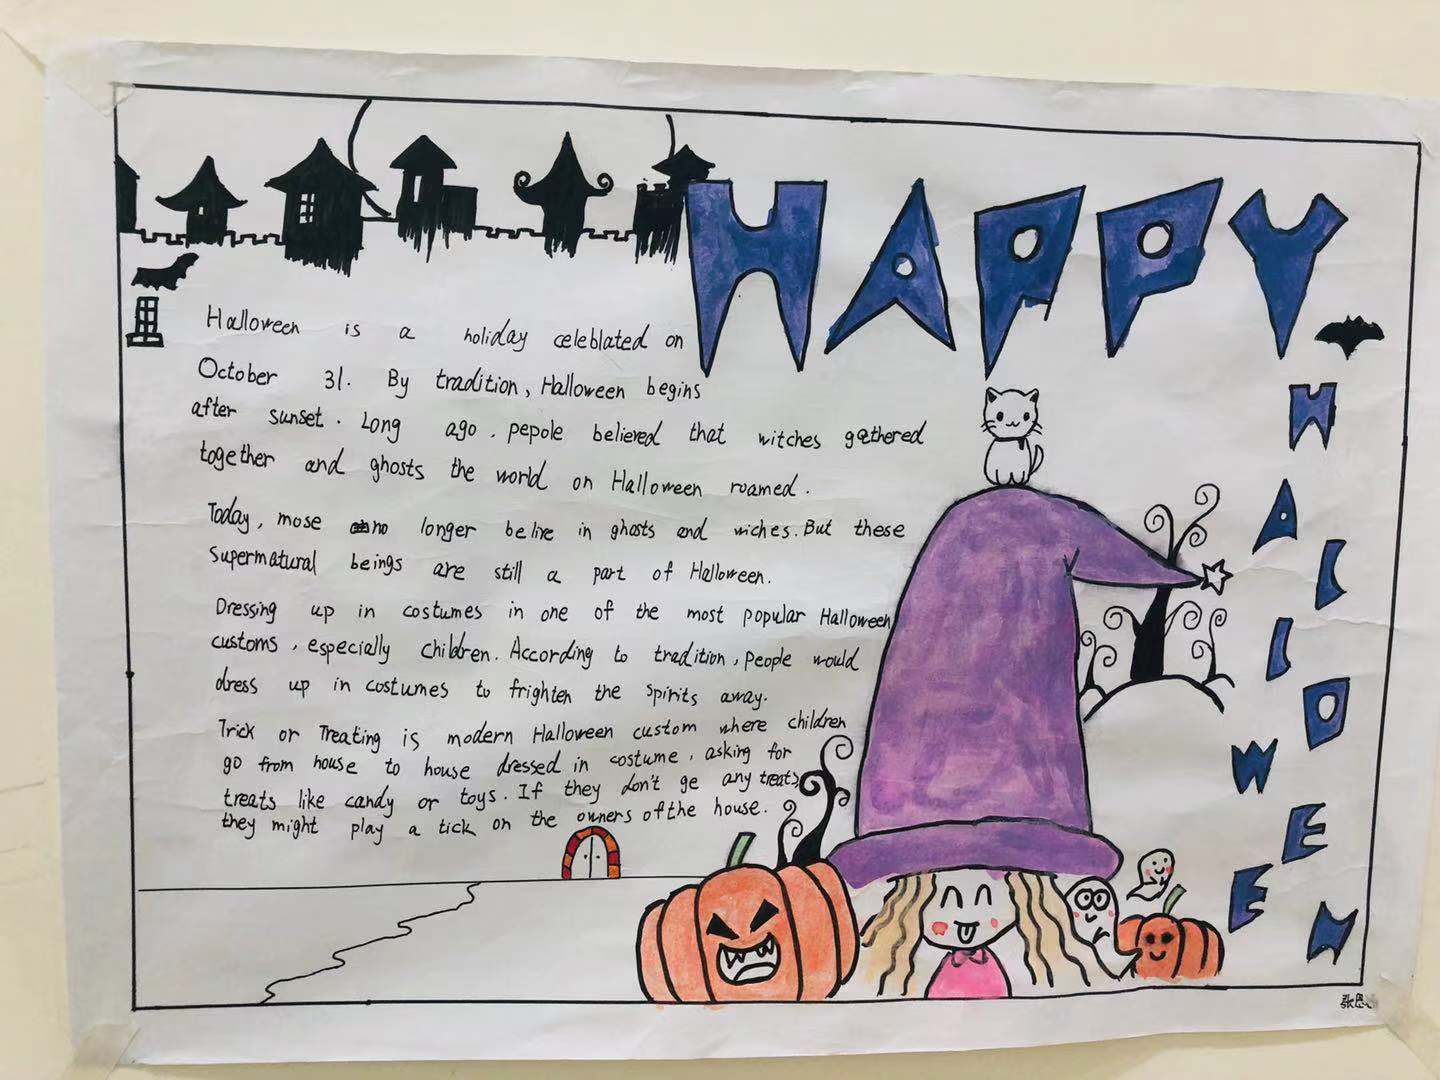 HAPPY
HALLOWEEN
Halloween is a holiday celeblated on
October 31. By tradition, Halloween begins
after sunset. Long ago, pepole believed that witches gathered
together and ghosts the world on Halloween roamed.
Today, mose no longer belive in ghosts and wiches. But these
supermatural beings are still a part of Halloween.
Dressing up in costumes in one of the most popular Halloween
customs, especially children. According to tradition, people would
dress up in costumes to frighten the spirits away.
Trick or Treating is modern Halloween custom where children
go from house to house dressed in costume, asking for
treats like candy or toys. If they don't ge any treats,
they might play a tick on the owners of the house.